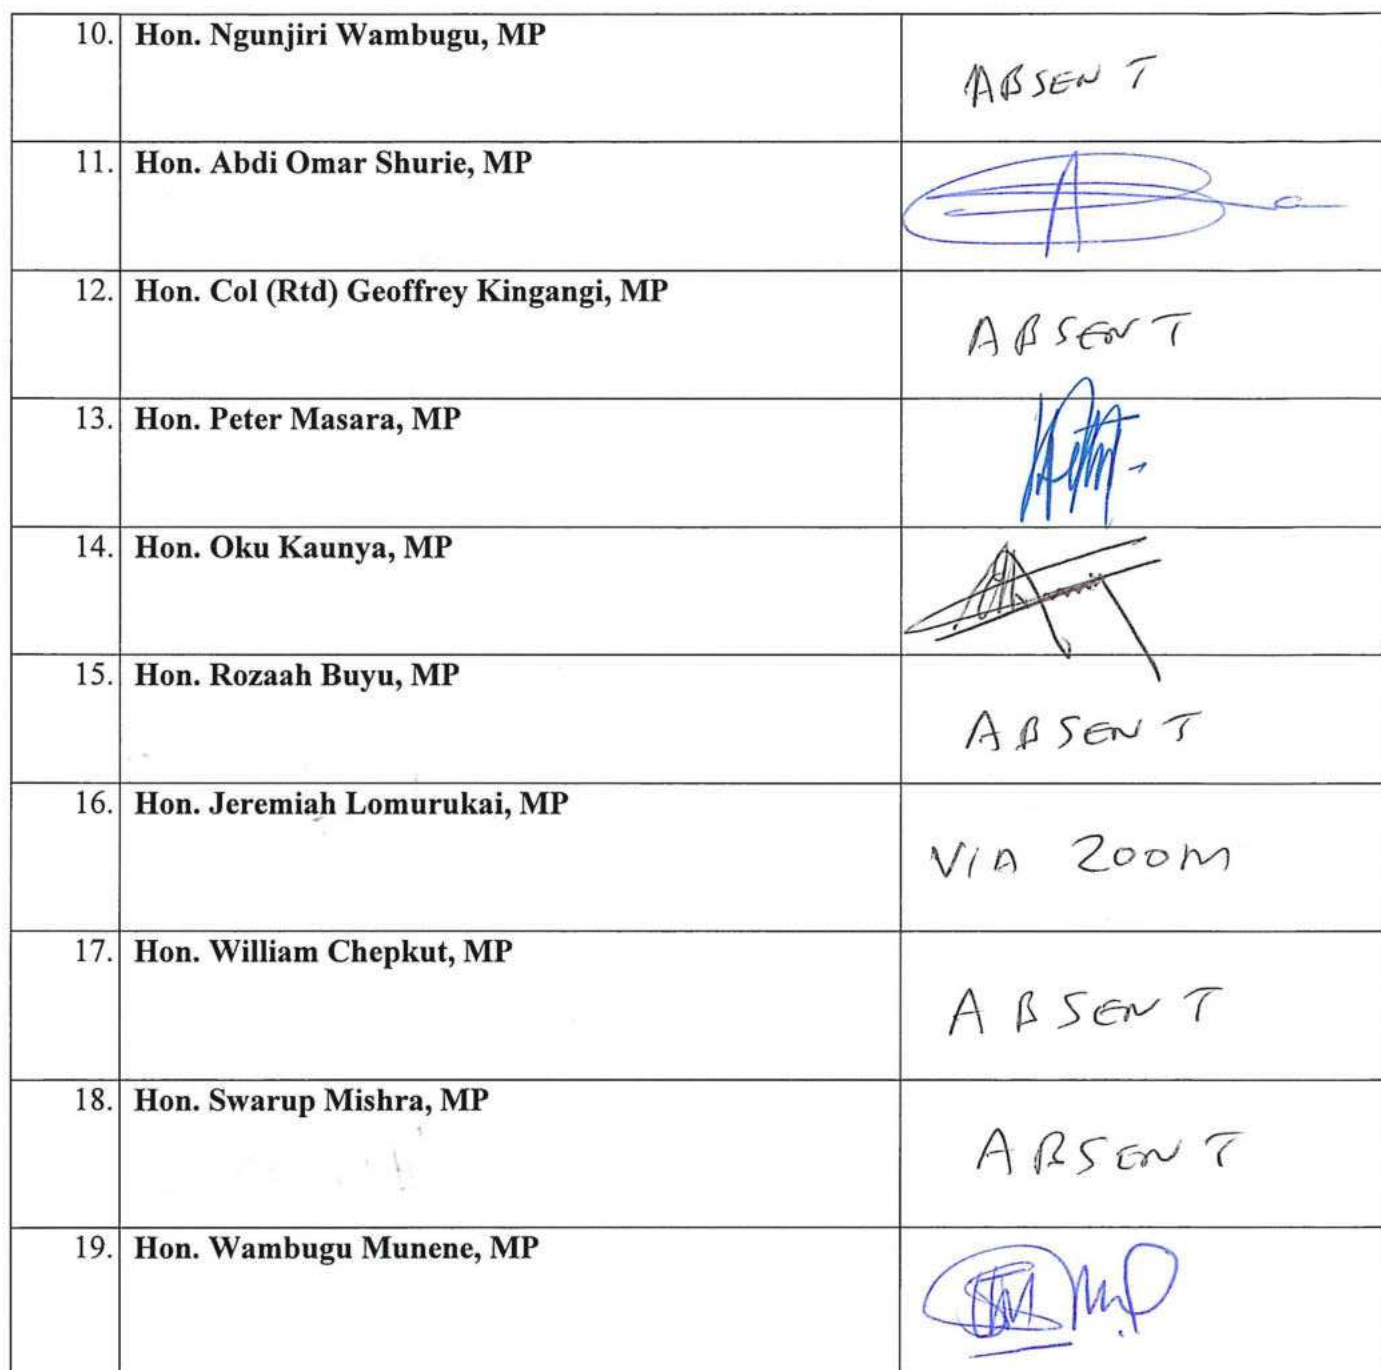 10. Hon. Ngunjiri Wambugu, MP
ABSENT
11. Hon. Abdi Omar Shurie, MP
12. Hon. Col (Rtd) Geoffrey Kingangi, MP
ABSENT
13. Hon. Peter Masara, MP
14. Hon. Oku Kaunya, MP
15. Hon. Rozaah Buyu, MP
ABSENT
16. Hon. Jeremiah Lomurukai, MP
VIA ZOOM
17. Hon. William Chepkut, MP
ABSENT
18. Hon. Swarup Mishra, MP
ABSENT
19. Hon. Wambugu Munene, MP